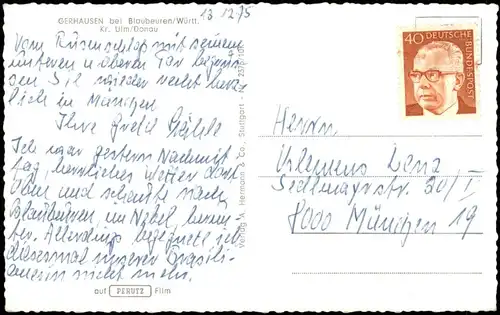 GERHAUSEN bei Blaubeuren/Württ.
Kr. Ulm/Donau
13.12.75
Vom Rusenschloß mit seinem
unteren u. oberen Tor begrüs-
sen Sie wieder recht herz-
lich in München
Ihre
Ich war gestern Nachmit-
tag, herrliches Wetter dort
oben und schaute nach
Blaubeuren im Nebel hinun-
ter. Allerdings begegnete ich
diesesmal unserer Brasili-
anerin nicht mehr.
auf PERUTZ Film
Verlag A. Hermann & Co., Stuttgart
40 DEUTSCHE
BUNDESPOST
Herrn
Klemens Lenz
Sedlmayrstr. 30/I
8000 München 19